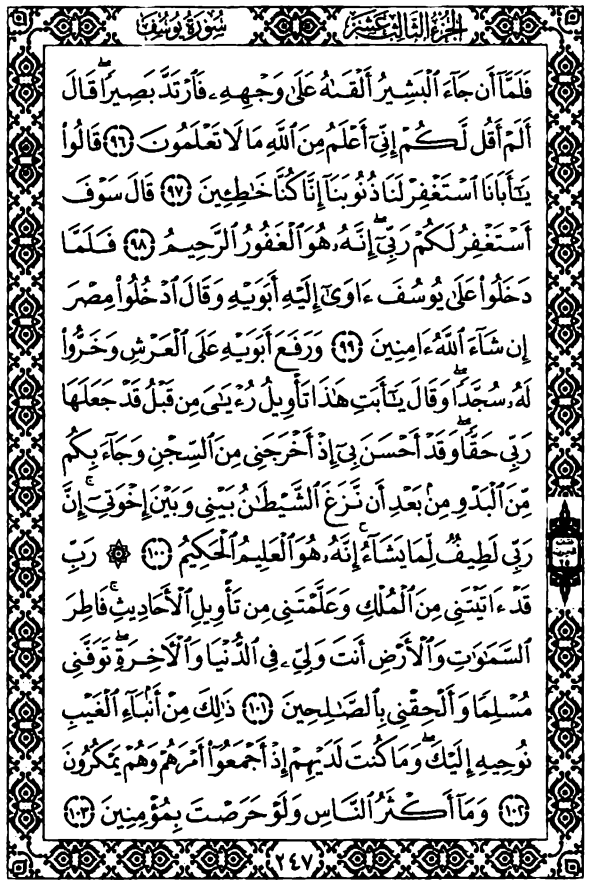 سورة يوسف
الجزء الثالث عشر
فَلَمَّآ أَن جَآءَ ٱلْبَشِيرُ أَلْقَىٰهُ عَلَىٰ وَجْهِهِۦ فَٱرْتَدَّ بَصِيرًاۖ قَالَ
أَلَمْ أَقُل لَّكُمْ إِنِّىٓ أَعْلَمُ مِنَ ٱللَّهِ مَا لَا تَعْلَمُونَ ٩٦ قَالُوا۟
يَـٰٓأَبَانَا ٱسْتَغْفِرْ لَنَا ذُنُوبَنَآ إِنَّا كُنَّا خَـٰطِـِٔينَ ٩٧ قَالَ سَوْفَ
أَسْتَغْفِرُ لَكُمْ رَبِّىٓۖ إِنَّهُۥ هُوَ ٱلْغَفُورُ ٱلرَّحِيمُ ٩٨ فَلَمَّا
دَخَلُوا۟ عَلَىٰ يُوسُفَ ءَاوَىٰٓ إِلَيْهِ أَبَوَيْهِ وَقَالَ ٱدْخُلُوا۟ مِصْرَ
إِن شَآءَ ٱللَّهُ ءَامِنِينَ ٩٩ وَرَفَعَ أَبَوَيْهِ عَلَى ٱلْعَرْشِ وَخَرُّوا۟
لَهُۥ سُجَّدًاۖ وَقَالَ يَـٰٓأَبَتِ هَـٰذَا تَأْوِيلُ رُءْيَـٰىَ مِن قَبْلُ قَدْ جَعَلَهَا
رَبِّى حَقًّاۖ وَقَدْ أَحْسَنَ بِىٓ إِذْ أَخْرَجَنِى مِنَ ٱلسِّجْنِ وَجَآءَ بِكُم
مِّنَ ٱلْبَدْوِ مِنۢ بَعْدِ أَن نَّزَغَ ٱلشَّيْطَـٰنُ بَيْنِى وَبَيْنَ إِخْوَتِىٓۚ إِنَّ
رَبِّى لَطِيفٌ لِّمَا يَشَآءُۚ إِنَّهُۥ هُوَ ٱلْعَلِيمُ ٱلْحَكِيمُ ١٠٠ ۞ رَبِّ
قَدْ ءَاتَيْتَنِى مِنَ ٱلْمُلْكِ وَعَلَّمْتَنِى مِن تَأْوِيلِ ٱلْأَحَادِيثِۚ فَاطِرَ
ٱلسَّمَـٰوَٰتِ وَٱلْأَرْضِ أَنتَ وَلِىِّۦ فِى ٱلدُّنْيَا وَٱلْـَٔاخِرَةِۖ تَوَفَّنِى
مُسْلِمًا وَأَلْحِقْنِى بِٱلصَّـٰلِحِينَ ١٠١ ذَٰلِكَ مِنْ أَنۢبَآءِ ٱلْغَيْبِ
نُوحِيهِ إِلَيْكَۖ وَمَا كُنتَ لَدَيْهِمْ إِذْ أَجْمَعُوٓا۟ أَمْرَهُمْ وَهُمْ يَمْكُرُونَ
١٠٢ وَمَآ أَكْثَرُ ٱلنَّاسِ وَلَوْ حَرَصْتَ بِمُؤْمِنِينَ ١٠٣
٢٤٧